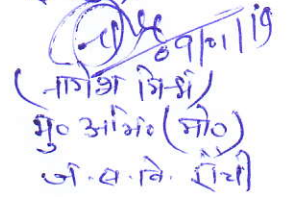 09/01/19
(नागेश मिश्र)
मु० अभि० (मो०)
ज.सं.वि. राँची